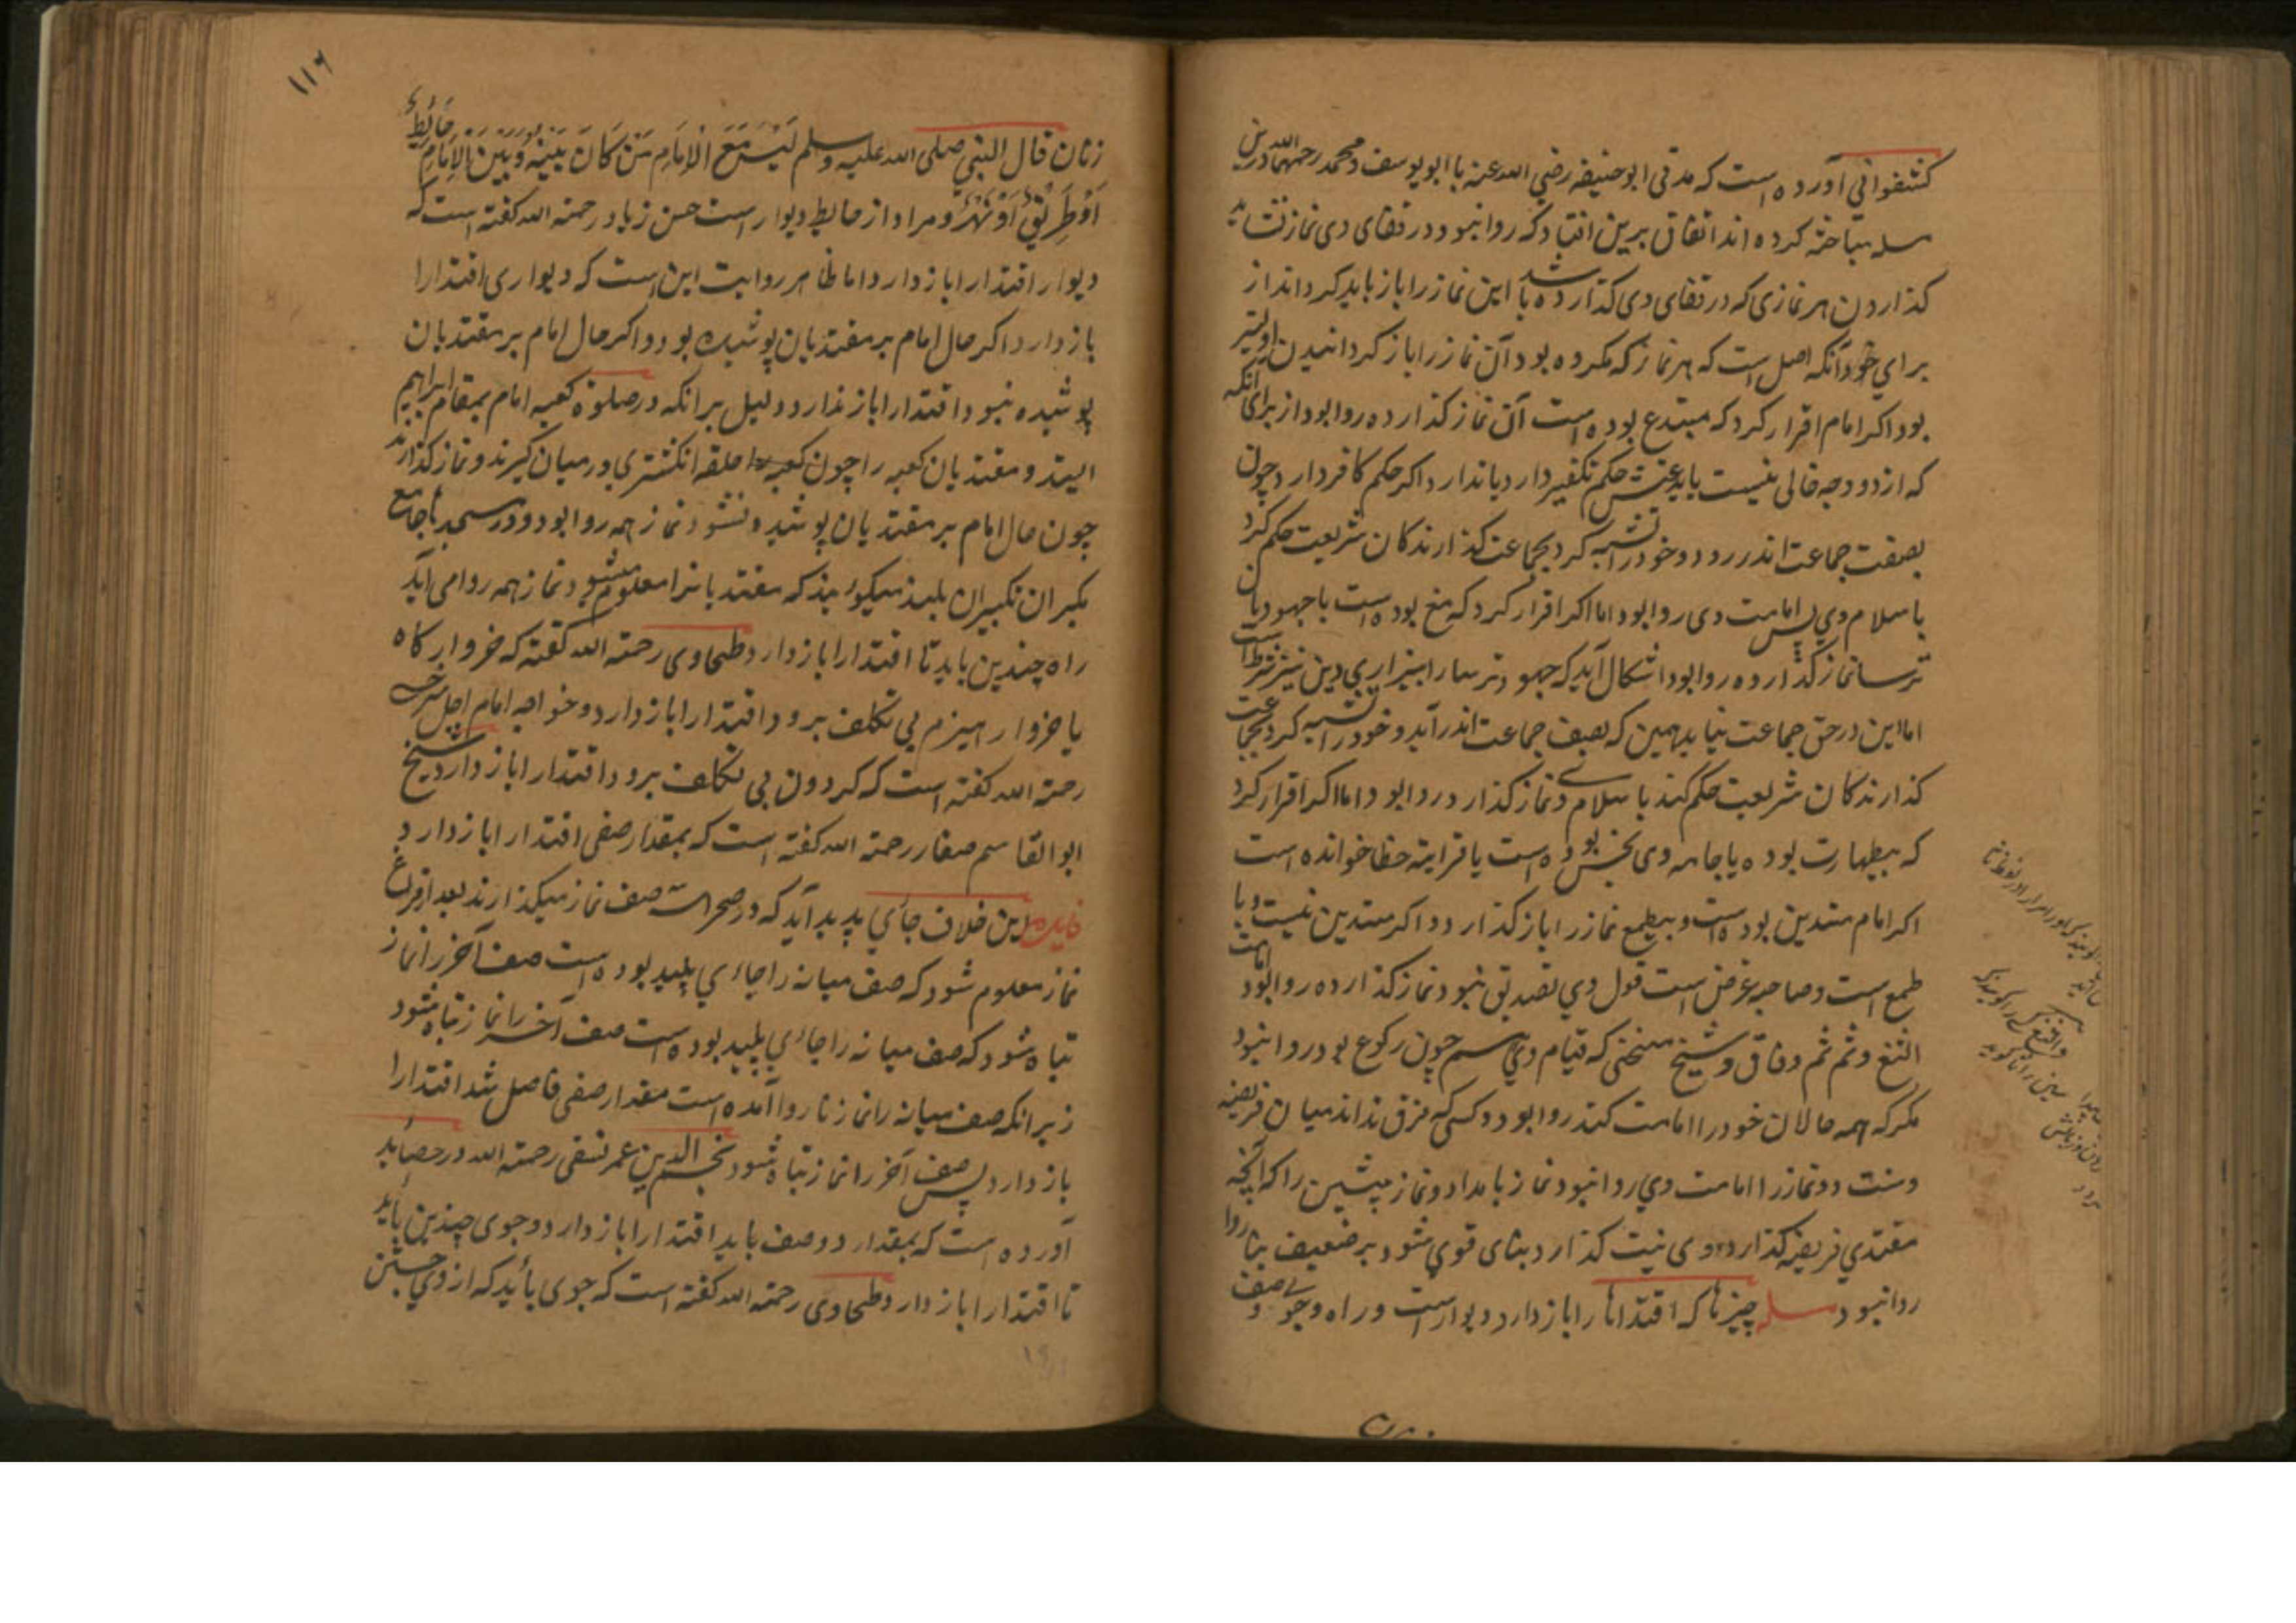 کشفوانی آورده است که مدتی ابوحنیفه رضی الله عنه با ابویوسف و محمد رحمهما الله درین
مسله مباحثه کرده اند اتفاق برین افتاد که روا نبود و در قفای وی نماز نشاید
کذاردن هر نمازی که در قفای وی کذارده باشد این نماز را باز باید کردانند از
برای خود آنکه اصل است که هر نماز که مکروه بود آن نماز را باز کردانیدن اولیتر
بود اکر امام اقرار کرد که مبتدع بوده است آن نماز کذارده روا بود از برای آنکه
که از دو وجه خالی نیست یا بدعتش حکم تکفیر دارد یا ندارد اکر حکم کافر دارد چون
بصفت جماعت اندر رود و خود را تشبه کرد بجماعت کذارندکان شریعت حکم کرد
باسلام وی پس امامت وی روا بود اما اکر اقرار کرد که مغ بوده است یا جهود یا
ترسا نماز کذارده روا بود اشکال آید که جهود و ترسا را بیزاری دین نیز شرط است
اما این در حق جماعت نیاید همین که بصف جماعت اندر آید و خود را تشبه کرد بجماعت
کذارندکان شریعت حکم کند باسلام وی و نماز کذارد روا بود اما اکر اقرار کرد
که بیطهارت بوده یا جامه وی نجس بوده است یا قرایته خطا خوانده است
اکر امام متدین بوده است و بیطمع نماز را باز کذارد و اکر متدین نیست و با
طمع است و صاحب غرض است قول وی تصدیق نبود نماز کذارده روا بود امامت
الثغ و تم تم و فاق و شیخ منحنی که قیام وی سم چون رکوع بود روا نبود
مکر که همه حالان خود را امامت کند روا بود و کسی که فرق نداند میان فریضه
و سنت دو نماز را امامت وی روا نبود نماز بامداد و نماز پیشین را که آنچه
مقتدی فریضه کذارد و وی نیت کذارد بنای قوی شود بر ضعیف بنا روا
روا نبود مسله چیزها که اقتداها را باز دارد دیوار است و راه و جوی و صف
زنان قال النبی صلی الله علیه وسلم لَیْسَ مَعَ الْاِمَامِ مَنْ کَانَ بَیْنَهُ وَبَیْنَ الاِمَامِ حَائِطٌ
اَوْ طَرِیْقٌ اَوْ نَهْرٌ و مراد از حایط دیوار است حسن زیاد رحمة الله کفته است که
دیوار اقتدا را باز دارد اما ظاهر روایت این است که دیواری اقتدا را
باز دارد اکر حال امام بر مقتدیان پوشیده بود و اکر حال امام بر مقتدیان
پوشیده نبود اقتدا را باز ندارد و دلیل برانکه در صلوة کعبه امام بمقام ابراهیم
ایستد و مقتدیان کعبه را چون حلقه انکشتری در میان کیرند و نماز کذارند
چون حال امام بر مقتدیان پوشیده نشود نماز همه روا بود و در مسجد جامع
مکبران تکبیران بلند میکویند که مقتدیانرا معلوم میشود نماز همه روا می آید
راه چندین باید تا اقتدا را باز دارد طحاوی رحمته الله کفته که خروار کاه
یا خروار هیزم بی تکلف برود اقتدا را باز دارد و خواجه امام اجل سرخسی
رحمة الله کفته است که کردون بی تکلف برود اقتدا را باز دارد شیخ
ابوالقاسم صفار رحمته الله کفته است که بمقدار صفی اقتدا را باز دارد و
فایده این خلاف جای پدید آید که در صحرا سه صف نماز میکذارند بعد از فراغ
نماز معلوم شود که صف میانه را جای پلید بوده است صف آخر را نماز
تباه شود که صف میانه را جای پلید بوده است صف آخر را نماز تباه شود
زیرانکه صف میانه را نماز ناروا آمده است مقدار صفی فاصل شد اقتدا را
باز دارد پس صف آخر را نماز تباه شود نجم الدین عمر نسفی رحمته الله در حصاید
آورده است که بمقدار دو صف باید اقتدا را باز دارد و جوی چندین باید
تا اقتدا را باز دارد طحاوی رحمته الله کفته است که جوی باید که از وی جستن
۱۱۶